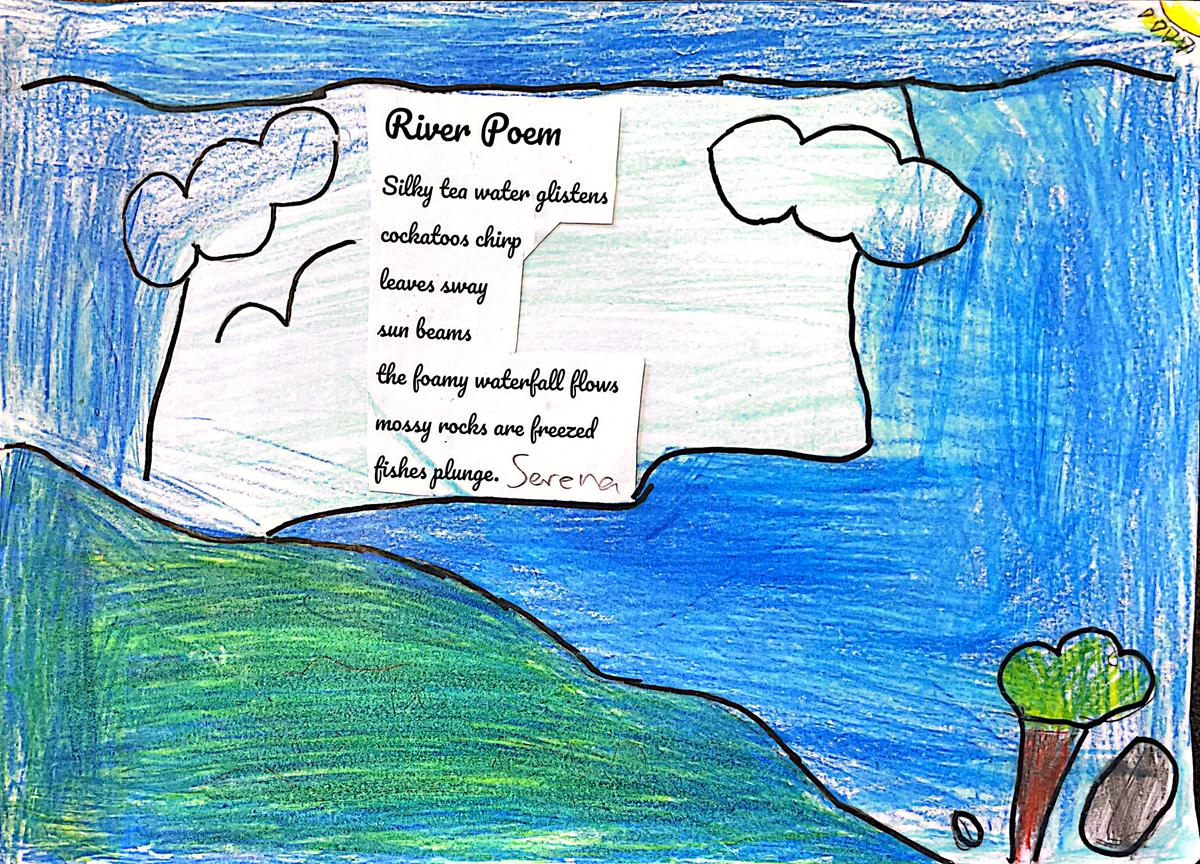 River Poem
Silky tea water glistens
cockatoos chirp
leaves sway
sun beams
the foamy waterfall flows
mossy rocks are freezed
fishes plunge. Serena